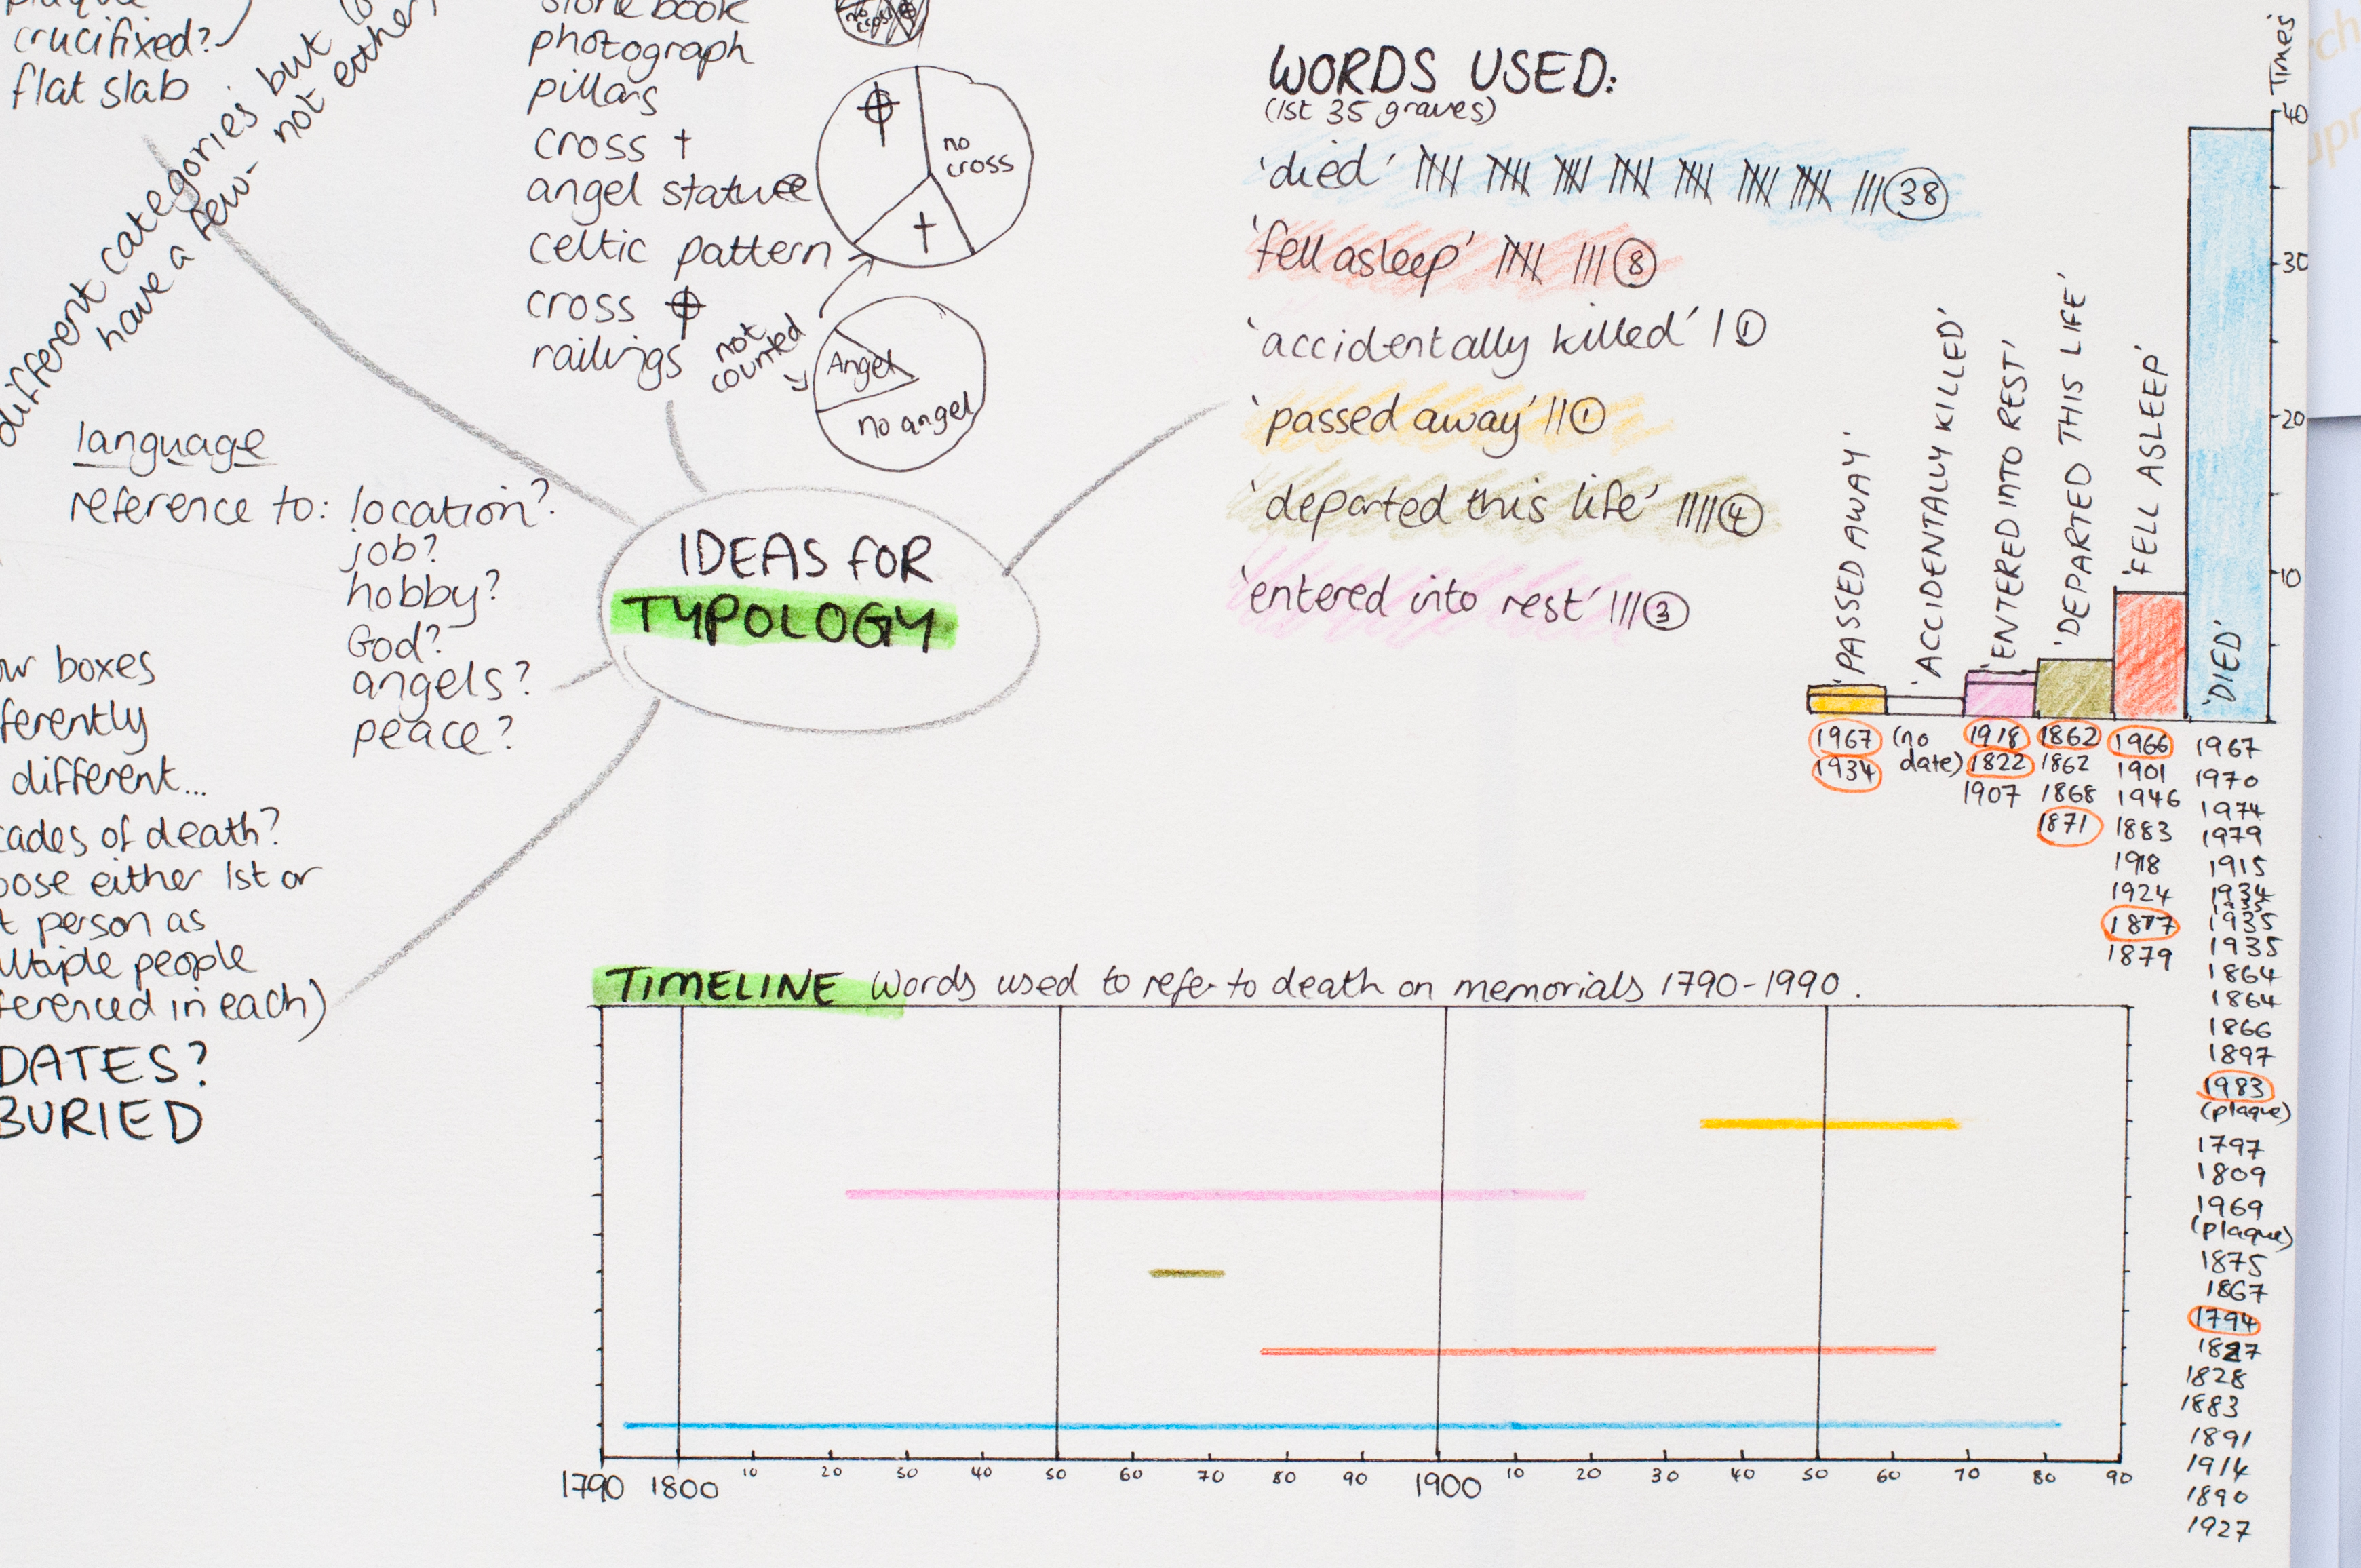 plaque
crucifixed?
flat slab
different categories but
have a few-
not either
stone book
photograph
pillars
cross †
angel statue
celtic pattern
cross
railings
no cross
no
cross
not
counted
Angel
no angel
language
reference to: location?
job?
hobby?
God?
angels?
peace?
IDEAS FOR
TYPOLOGY
boxes
different...
of death?
either 1st or
person as
people
in each)
DATES?
BURIED
WORDS USED:
(1st 35 graves)
'died' 38
'fell asleep' 8
'accidentally killed' 1
'passed away' 1
'departed this life' 4
'entered into rest' 3
Times
40
30
20
10
'PASSED AWAY'
'ACCIDENTALLY KILLED'
'ENTERED INTO REST'
'DEPARTED THIS LIFE'
'FELL ASLEEP'
'DIED'
1967
1934
(no
date)
1918
1822
1907
1862
1862
1868
1871
1966
1901
1946
1883
1918
1924
1877
1879
1967
1970
1974
1979
1915
1934
1935
1935
1935
1864
1864
1866
1897
1983
(plaque)
1797
1809
1969
(plaque)
1875
1867
1794
1827
1828
1883
1891
1914
1890
1927
TIMELINE Words used to refer to death on memorials 1790-1990.
1790 1800 10 20 30 40 50 60 70 80 90 1900 10 20 30 40 50 60 70 80 90